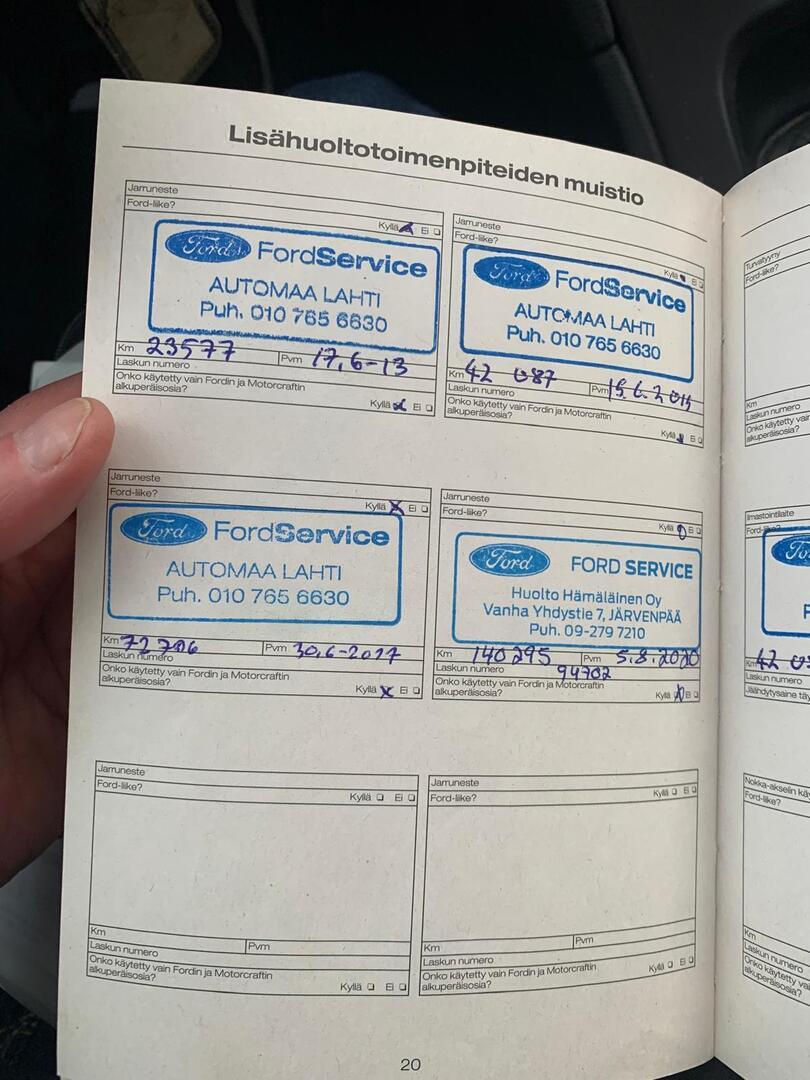 Lisähuoltotoimenpiteiden muistio
Jarruneste
Ford-liike?
Kyllä Ei
Ford FordService
AUTOMAA LAHTI
Puh. 010 765 6630
Km 23577 Pvm 17.6-13
Laskun numero
Onko käytetty vain Fordin ja Motorcraftin
alkuperäisosia?
Kyllä Ei
Jarruneste
Ford-liike?
Kyllä Ei
Ford FordService
AUTOMAA LAHTI
Puh. 010 765 6630
Km 42 087 Pvm 15.6.2015
Laskun numero
Onko käytetty vain Fordin ja Motorcraftin
alkuperäisosia?
Kyllä Ei
Jarruneste
Ford-liike?
Kyllä X Ei
Ford FordService
AUTOMAA LAHTI
Puh. 010 765 6630
Km 72706 Pvm 30.6-2017
Laskun numero
Onko käytetty vain Fordin ja Motorcraftin
alkuperäisosia?
Kyllä X Ei
Jarruneste
Ford-liike?
Kyllä Ei
Ford FORD SERVICE
Huolto Hämäläinen Oy
Vanha Yhdystie 7, JÄRVENPÄÄ
Puh. 09-279 7210
Km 140295 Pvm 5.8.2020
Laskun numero 94702
Onko käytetty vain Fordin ja Motorcraftin
alkuperäisosia?
Kyllä Ei
Jarruneste
Ford-liike?
Kyllä Ei
Km
Laskun numero Pvm
Onko käytetty vain Fordin ja Motorcraftin
alkuperäisosia?
Kyllä Ei
Jarruneste
Ford-liike?
Kyllä Ei
Km Pvm
Laskun numero
Onko käytetty vain Fordin ja Motorcraftin
alkuperäisosia?
Kyllä Ei
20
Turvatyyny
Ford-liike?
Km
Laskun numero
Onko käytetty
alkuperäisosia?
Ilmastointilaite
Km 42
Laskun numero
Jäähdytysaine
Ford-liike?
Km
Laskun numero
Onko käytetty
alkuperäisosia?